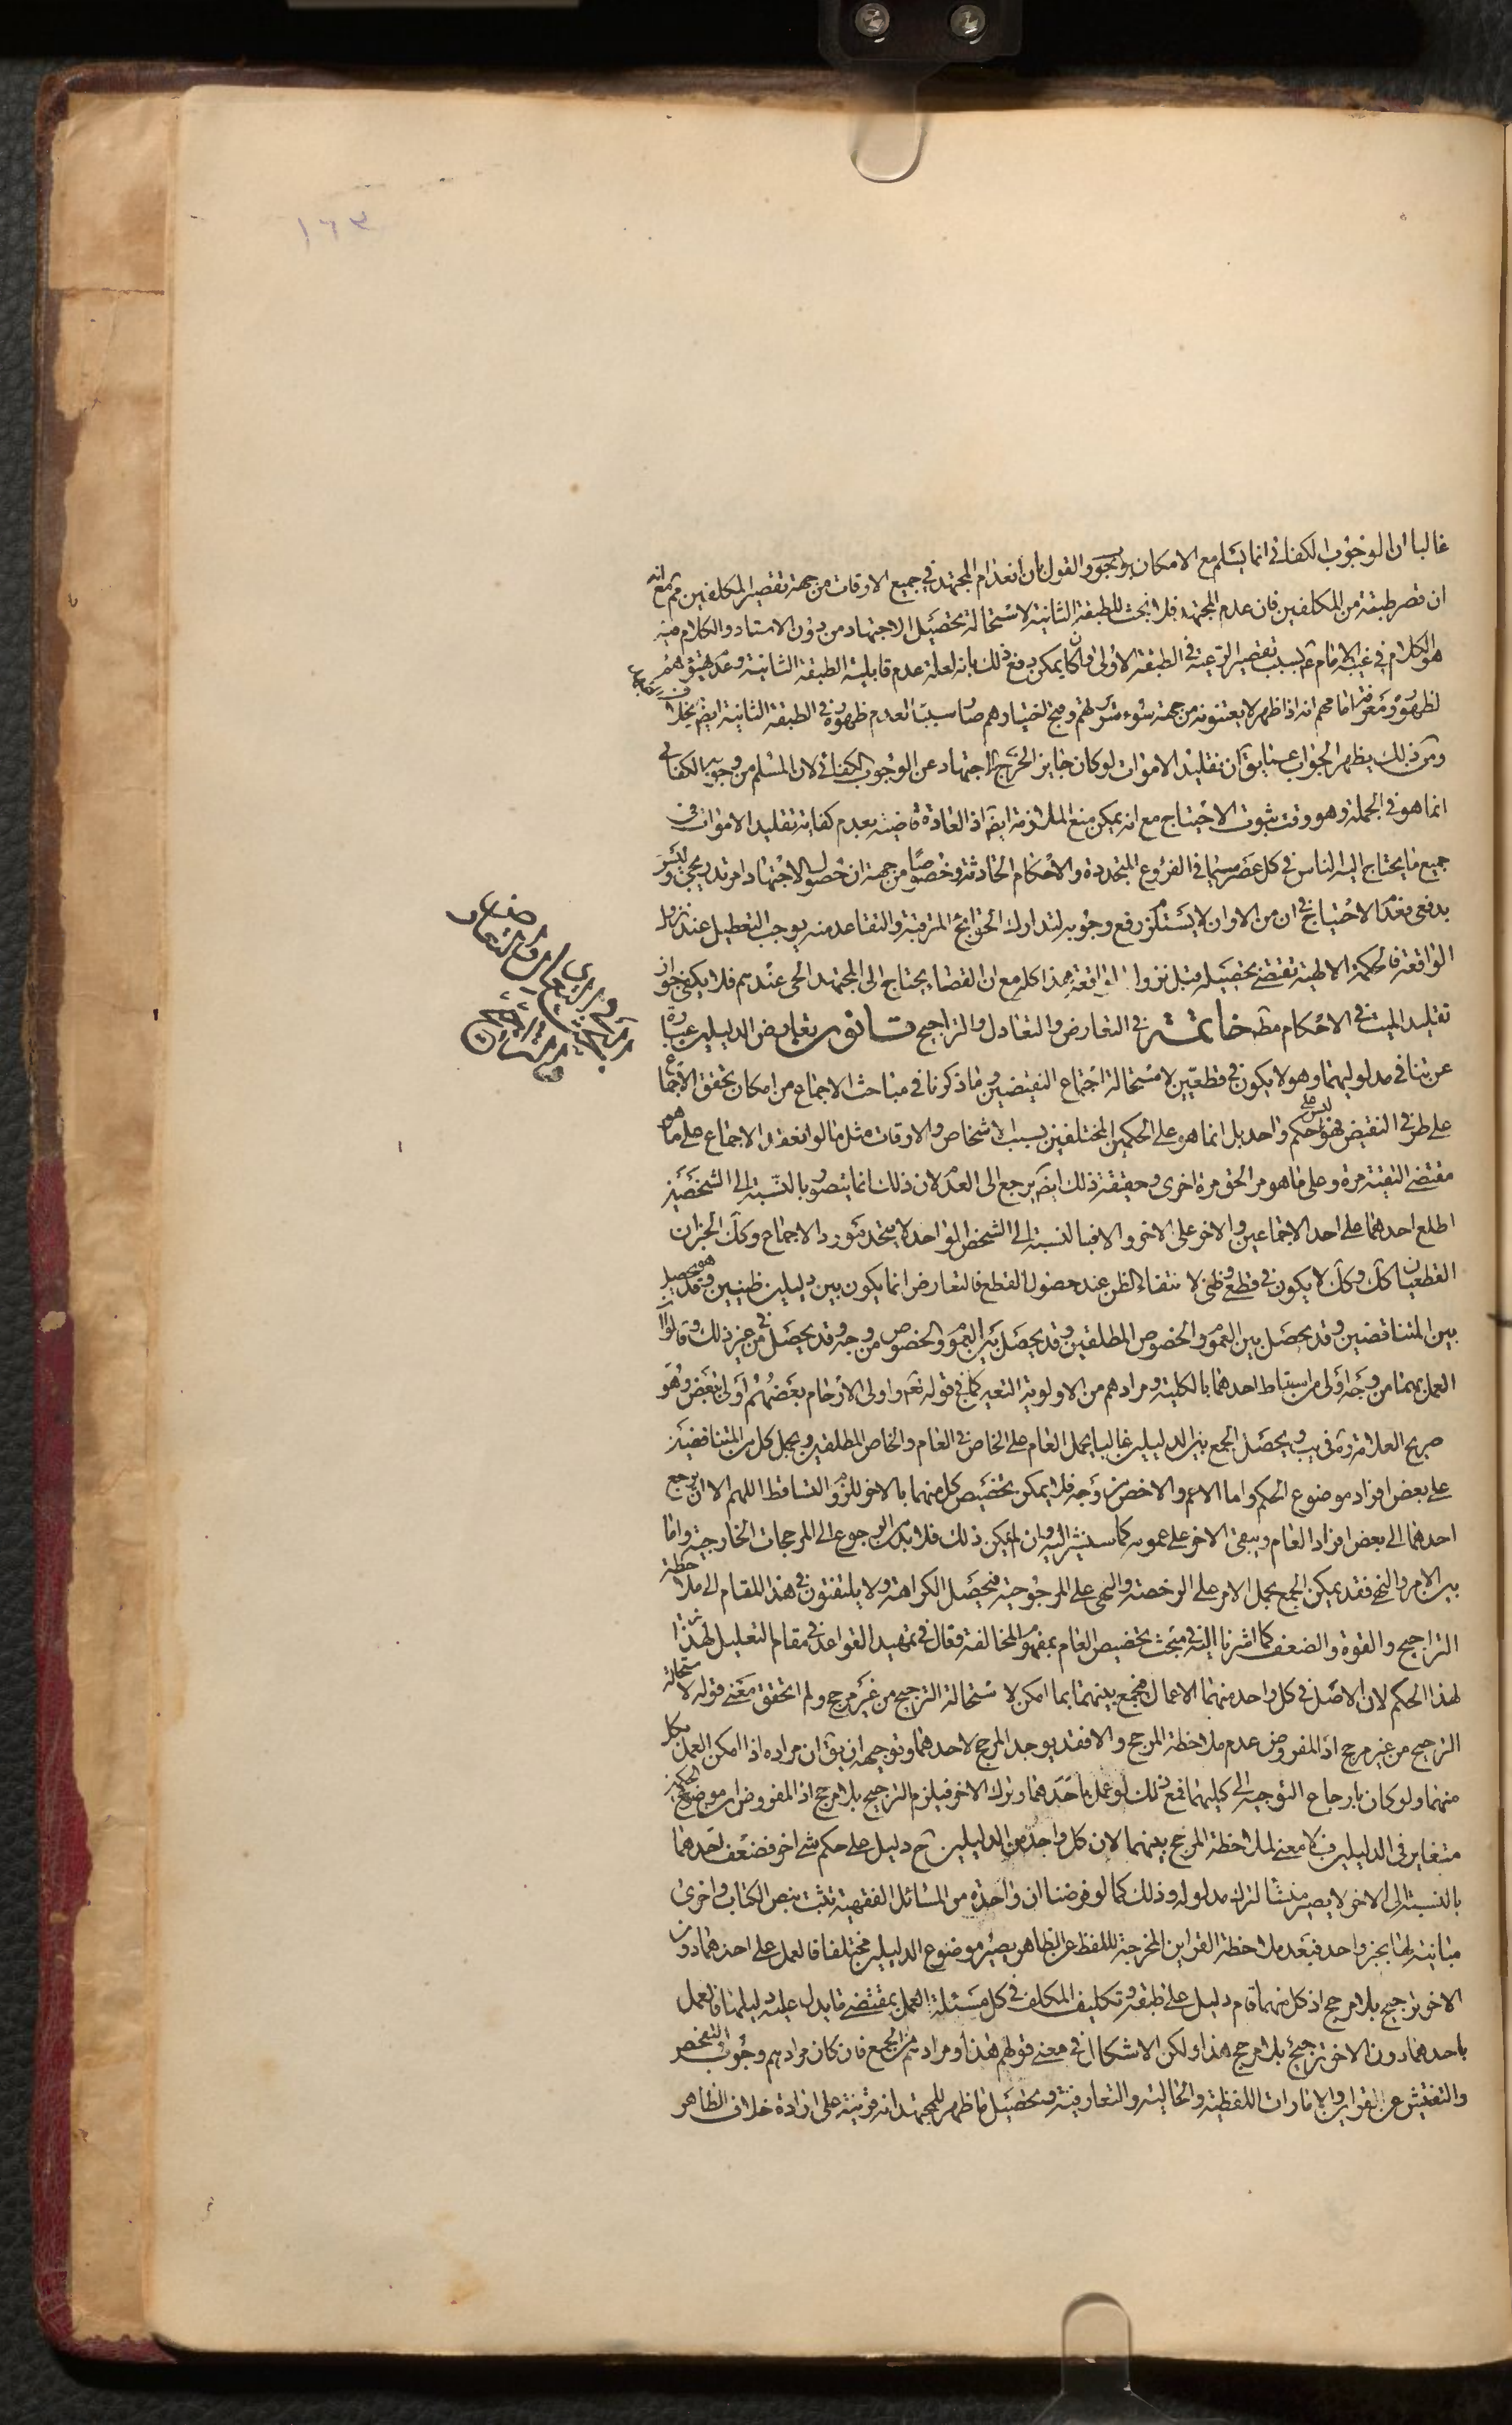 ١٦٣
غالبا ان الوجوب الكفائى انما يسلم مع الامكان ويجوز القول بان انعدام المجتهد فى جميع الاوقات من جهة تقصير المكلفين ثم مع انه
ان قصر طبقة من المكلفين فان عدم المجتهد فلا بحث للطبقة الثانية لاستحالة تحصيل الاجتهاد من دون الاستاد والكلام فيه
هو الكلام فى غيبة الامام ع بسبب تقصير الرعية فى الطبقة الاولى وان كان يمكن دفع ذلك بانه لعله عدم قابلية الطبقة الثانية وعدم
لظهوره ومعرفة امامهم انه اذا ظهر لا يعتنونه من جهة سوء سريرتهم وقبح اختيارهم صار سببا لعدم ظهوره فى الطبقة الثانية ايضا بخلاف
ومن ذلك يظهر الجواب عما يق ان تقليد الاموات لو كان جايزا لخرج الاجتهاد عن الوجوب الكفائى لان المسلم من وجوبه الكفائى
انما هو فى الجملة وهو وقت ثبوت الاحتياج مع انه يمكن منع الملازمة ايضا اذ العادة قاضية بعدم كفاية تقليد الاموات فى
جميع ما يحتاج اليه الناس فى كل عصر سيما فى الفروع المتجددة والاحكام الحادثة وخصوصا من جهة ان حصول الاجتهاد امر تدريجى وليس
بدفعى فعدم الاحتياج فى ان من الاوان لا يستلزم رفع وجوبه لتدارك الحوائج المترقبة والتقاعد منه يوجب التعطيل عند نزول
الواقعة فالحكمة الالهية تقتضى تحصيله قبل نزول الواقعة هذا كله مع ان القضاء يحتاج الى المجتهد الحى عندهم فلا يكفى جواز
تقليد الميت فى الاحكام مطـ خاتمة فى التعارض والتعادل والتراجيح قانون تعارض الدليلين عبارة
عن تنافى مدلوليهما وهو لا يكون فى قطعيين لاستحالة اجتماع النقيضين وما ذكرنا فى مباحث الاجماع من امكان تحقق الاجماع
على طرفى النقيض فهو ليس على حكم واحد بل انما هو على الحكمين المختلفين بسبب الاشخاص والاوقات مثل ما لو انعقد الاجماع على ما هو
مقتضى التقية مرة وعلى ما هو مر الحق مرة اخرى وحقيقة ذلك ايضا يرجع الى العدم لان ذلك انما يتصور بالنسبة الى الشخصين
اطلع احدهما على احد الاجماعين والاخر على الاخر والا فبالنسبة الى الشخص الواحد لا يتحد مورد الاجماع وكك الخبران
القطعيان كك وكك لا يكون فى قطعى وظنى لانتفاء الظن عند حصول القطع فالتعارض انما يكون بين دليلين ظنيين وهو قد يحصل
بين المتناقضين وقد يحصل بين العموم والخصوص المطلقين وقد يحصل بين العموم والخصوص من وجه وقد يحصل فى غير ذلك وقالوا ان
العمل بهما من وجه اولى من اسقاط احدهما بالكلية ومرادهم من الاولوية التعين كما فى قوله تعم واولى الارحام بعضهم اولى ببعض وهو
صريح العلامة ره فى يب ويحصل الجمع بين الدليلين غالبا بحمل العام على الخاص فى العام والخاص المطلقين وبحمل كل من المتناقضين
على بعض افراد موضوع الحكم واما الاعم والاخص من وجه فلا يمكن تخصيص كل منهما بالاخر للزوم التساقط اللهم الا ان يرجع
احدهما الى بعض افراد العام ويبقى الاخر على عمومه كما سنشير اليه وان لم يمكن ذلك فلا بد من الرجوع الى المرجحات الخارجية واما
بين الامر والنهى فقد يمكن الجمع بحمل الامر على الرخصة والنهى على المرجوحية فيحصل الكراهة ولا يلتفتون فى هذا المقام الى ملاحظة
التراجيح والقوة والضعف كما اشرنا اليه فى مبحث تخصيص العام بمفهوم المخالفة وقال فى تمهيد القواعد فى مقام التعليل لهذا
لهذا الحكم لان الاصل فى كل واحد منهما الاعمال فيجمع بينهما بما امكن لاستحالة الترجيح من غير مرجح ولم اتحقق معنى قوله لاستحالة
الترجيح من غير مرجح اذ المفروض عدم ملاحظة المرجح والا فقد يوجد المرجح لاحدهما وتوجيهه ان يق ان مراده اذا امكن العمل بكل
منهما ولو كان بارجاع التوجيه الى كليهما فمع ذلك لو عمل باحدهما وترك الاخر فيلزم الترجيح بلا مرجح اذ المفروض ان موضوع الحكمين
متغاير فى الدليلين فلا معنى لملاحظة المرجح بينهما لان كل واحد من الدليلين ح دليل على حكم شئ اخر فضعف احدهما
بالنسبة الى الاخر لا يصير منشا لترك مدلوله وذلك كما لو فرضنا ان واحدة من المسائل الفقهية تثبت بنص الكتاب واخرى
مباينة لها بخبر واحد فبعد ملاحظة القراين المخرجة لللفظ عن الظاهر يصير موضوع الدليلين مختلفا فالعمل على احدهما دون
الاخر ترجيح بلا مرجح اذ كل منهما قام دليل على طبقه وتكليف المكلف فى كل مسئلة العمل بمقتضى ما يدل عليه دليلها فالعمل
باحدهما دون الاخر ترجيح بلا مرجح هذا ولكن الاشكال فى معنى قولهم هذا ومرادهم من الجمع فان كان مرادهم وجوب التفحص
والتفتيش عن القراين والامارات اللفظية والحالية والتعارفية وتحصيل ما ظهر للمجتهد انه قرينة على ارادة خلاف الظاهر